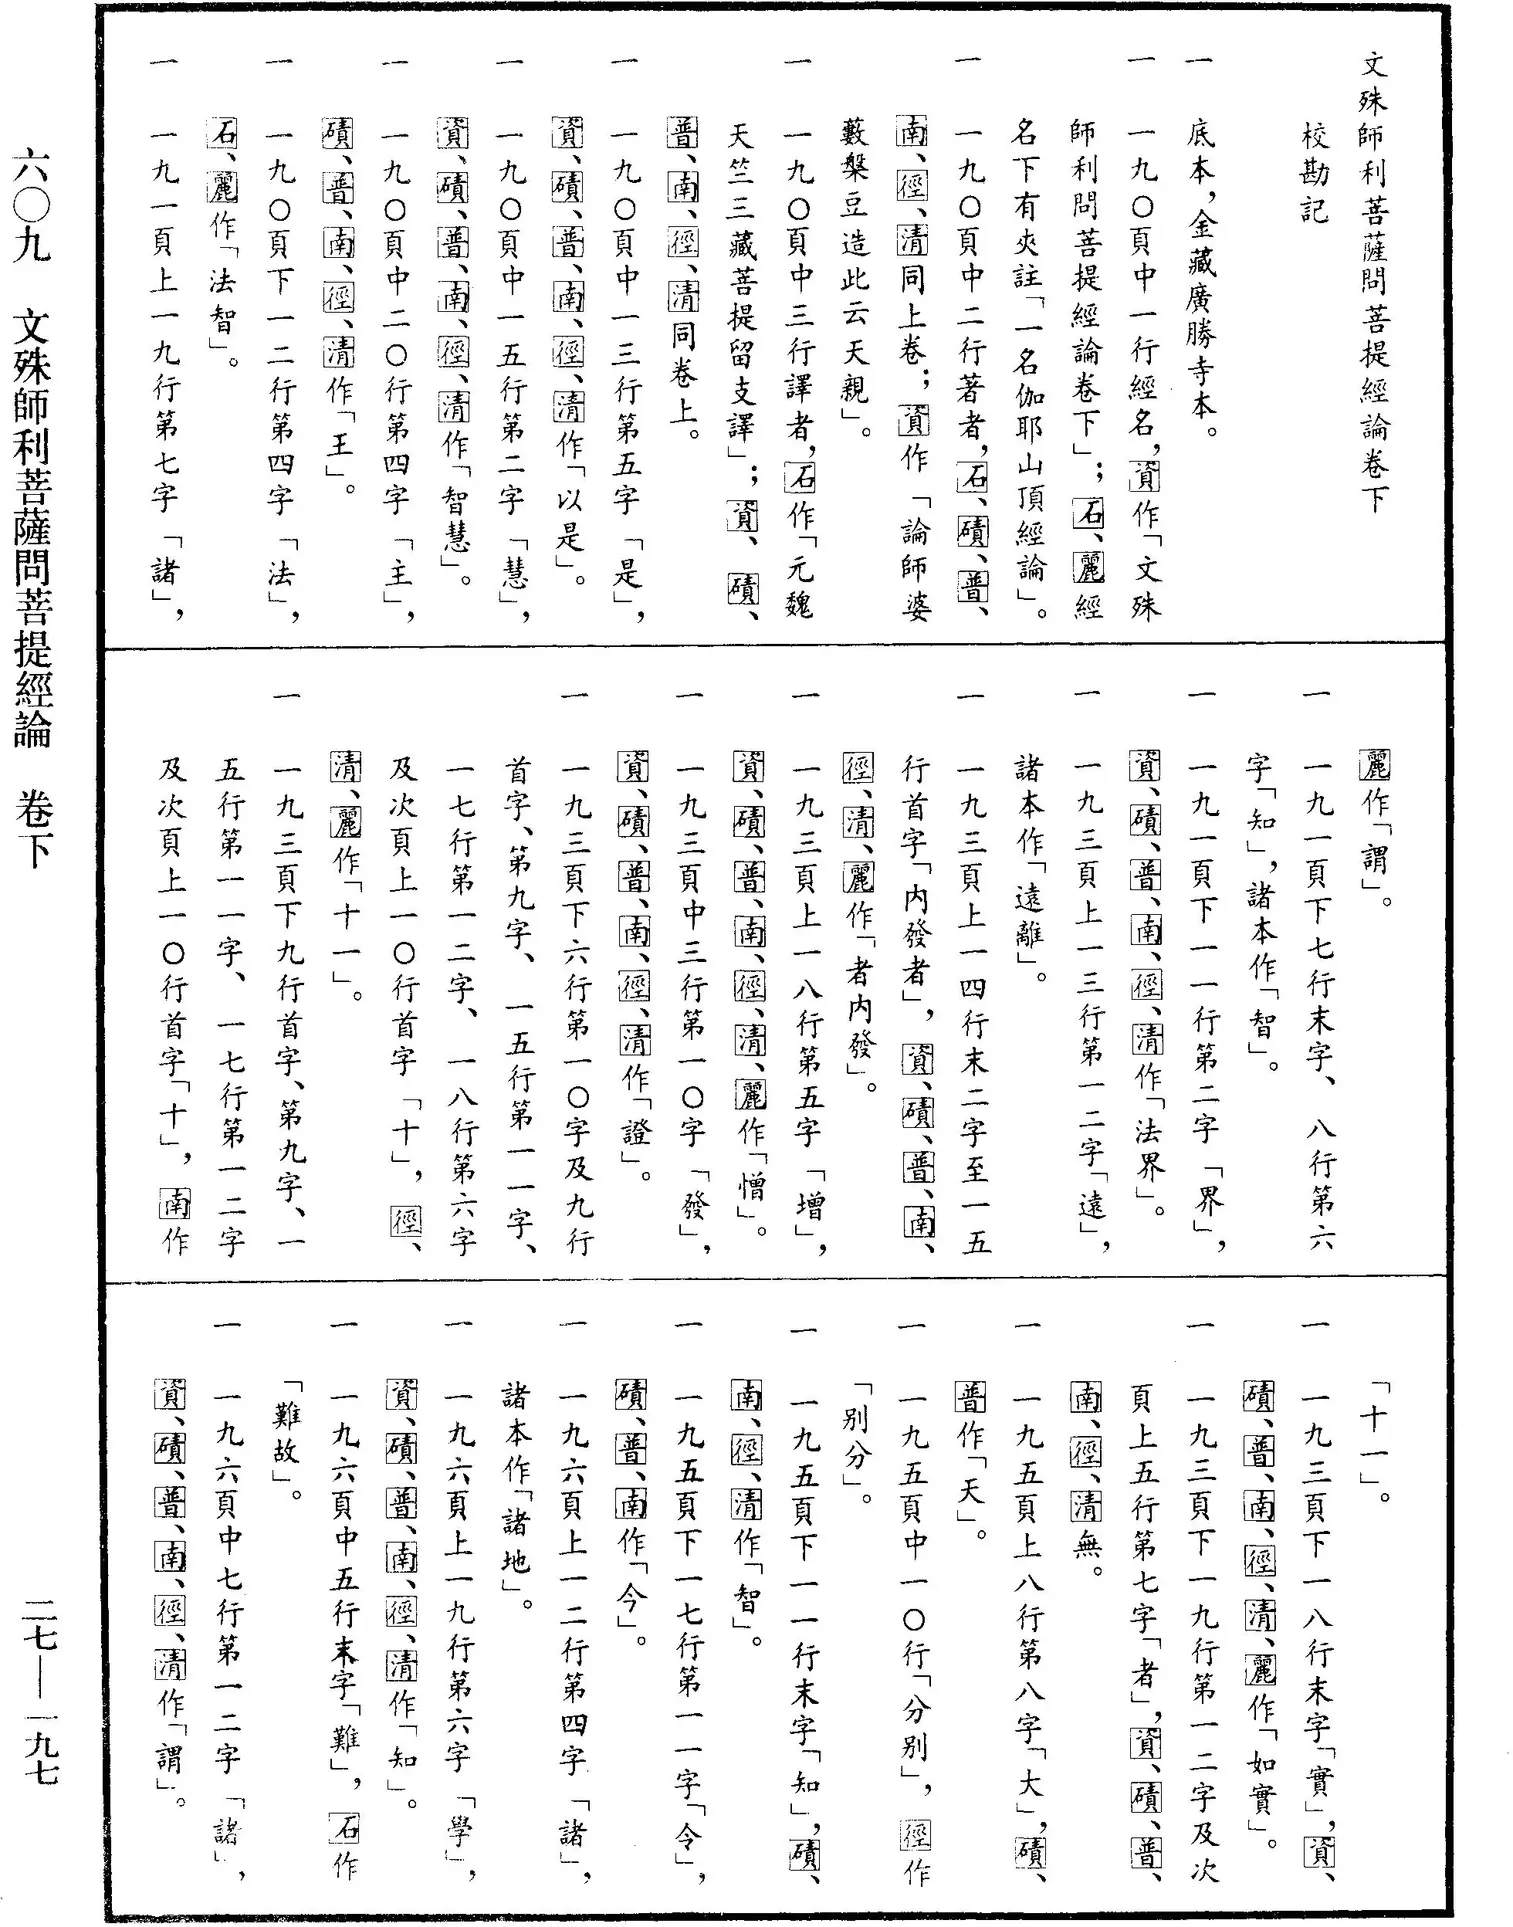 文殊師利菩薩問菩提經論卷下
校勘記
一 底本,金藏廣勝寺本。
一 一九〇頁中一行經名,資作「文殊
師利問菩提經論卷下」;石、麗經
名下有夾註「一名伽耶山頂經論」。
一 一九〇頁中二行著者,石、磧、普、
南、徑、清同上卷;資作「論師婆
藪槃豆造此云天親」。
一 一九〇頁中三行譯者,石作「元魏
天竺三藏菩提留支譯」;資、磧、
普、南、徑、清同卷上。
一 一九〇頁中一三行第五字「是」,
資、磧、普、南、徑、清作「以是」。
一 一九〇頁中一五行第二字「慧」,
資、磧、普、南、徑、清作「智慧」。
一 一九〇頁中二〇行第四字「主」,
磧、普、南、徑、清作「王」。
一 一九〇頁下一二行第四字「法」,
石、麗作「法智」。
一 一九一頁上一九行第七字「諸」,
麗作「謂」。
一 一九一頁下七行末字、八行第六
字「知」,諸本作「智」。
一 一九一頁下一一行第二字「界」,
資、磧、普、南、徑、清作「法界」。
一 一九三頁上一三行第一二字「遠」,
諸本作「遠離」。
一 一九三頁上一四行末二字至一五
行首字「内發者」,資、磧、普、南、
徑、清、麗作「者内發」。
一 一九三頁上一八行第五字「增」,
資、磧、普、南、徑、清、麗作「憎」。
一 一九三頁中三行第一〇字「發」,
資、磧、普、南、徑、清作「證」。
一 一九三頁下六行第一〇字及九行
首字、第九字、一五行第一一字、
一七行第一二字、一八行第六字
及次頁上一〇行首字「十」,徑、
清、麗作「十一」。
一 一九三頁下九行首字、第九字、一
五行第一一字、一七行第一二字
及次頁上一〇行首字「十」,南作
「十一」。
一 一九三頁下一八行末字「實」,資、
磧、普、南、徑、清、麗作「如實」。
一 一九三頁下一九行第一二字及次
頁上五行第七字「者」,資、磧、普、
南、徑、清無。
一 一九五頁上八行第八字「大」,磧、
普作「天」。
一 一九五頁中一〇行「分別」,徑作
「別分」。
一 一九五頁下一一行末字「知」,磧、
南、徑、清作「智」。
一 一九五頁下一七行第一一字「令」,
磧、普、南作「今」。
一 一九六頁上一二行第四字「諸」,
諸本作「諸地」。
一 一九六頁上一九行第六字「學」,
資、磧、普、南、徑、清作「知」。
一 一九六頁中五行末字「難」,石作
「難故」。
一 一九六頁中七行第一二字「諸」,
資、磧、普、南、徑、清作「謂」。
六〇九 文殊師利菩薩問菩提經論 卷下
二七—一九七